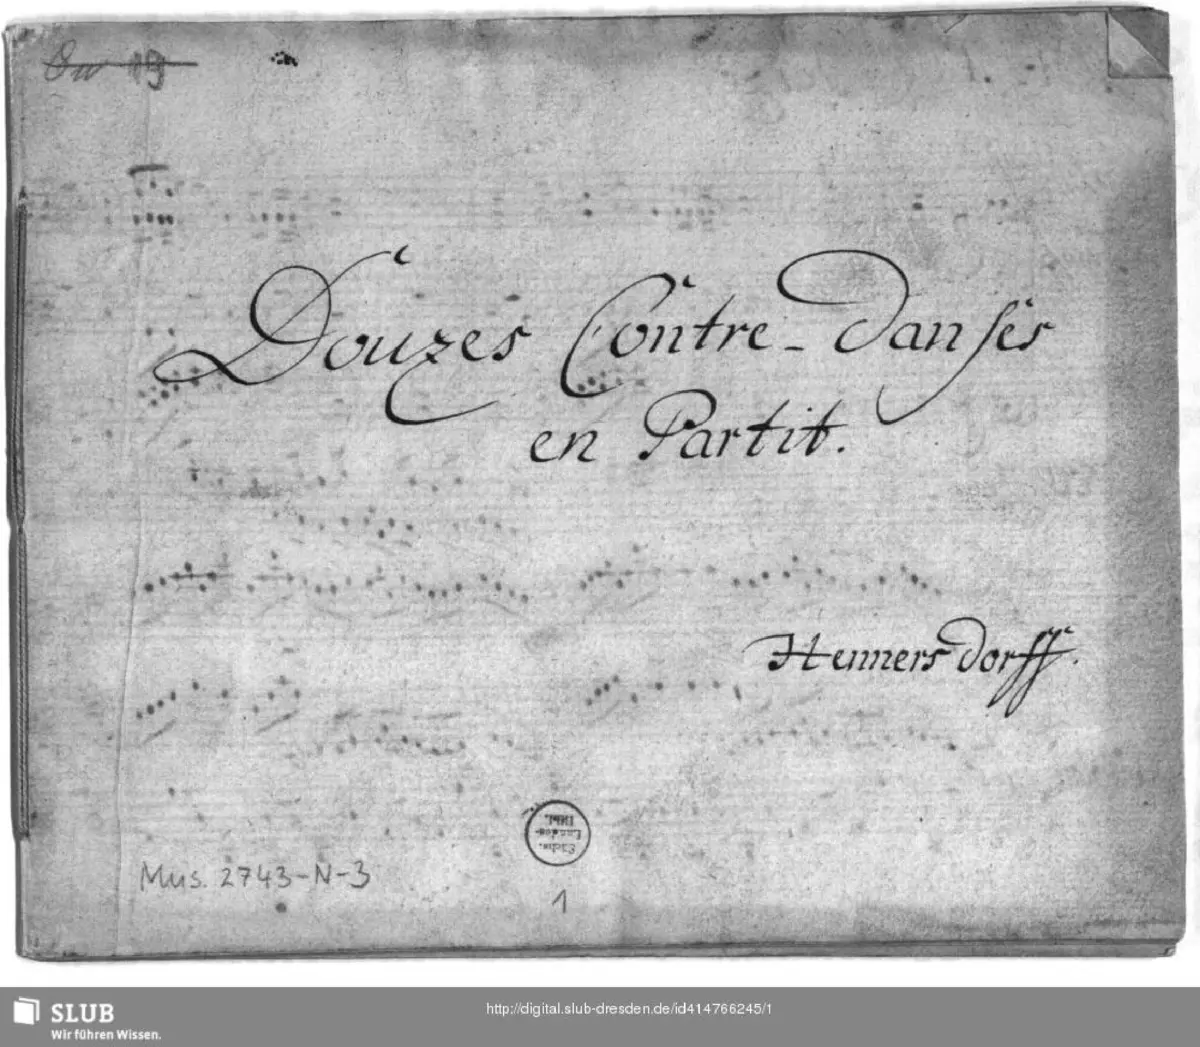 19
Douzes Contre-Danses
en Partit.
Hennersdorff.
Sächs.
Landes-
Bibl.
Mus. 2743-N-3
1
SLUB
Wir führen Wissen.
http://digital.slub-dresden.de/id414766245/1